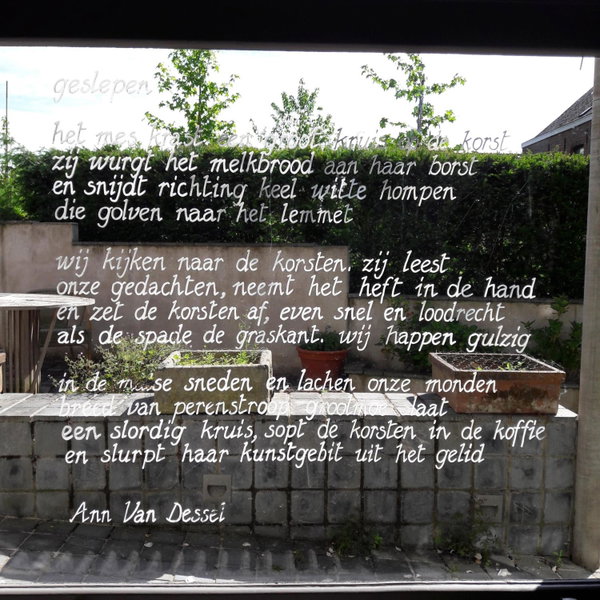 geslepen
het mes krast een groot kruis in de korst
zij wurgt het melkbrood aan haar borst
en snijdt richting keel witte hompen
die golven naar het lemmet
wij kijken naar de korsten. zij leest
onze gedachten, neemt het heft in de hand
en zet de korsten af, even snel en loodrecht
als de spade de graskant. wij happen gulzig
in de malse sneden en lachen onze monden
breed van perenstroop. grootmoe slaat
een slordig kruis, sopt de korsten in de koffie
en slurpt haar kunstgebit uit het gelid
Ann Van Dessel